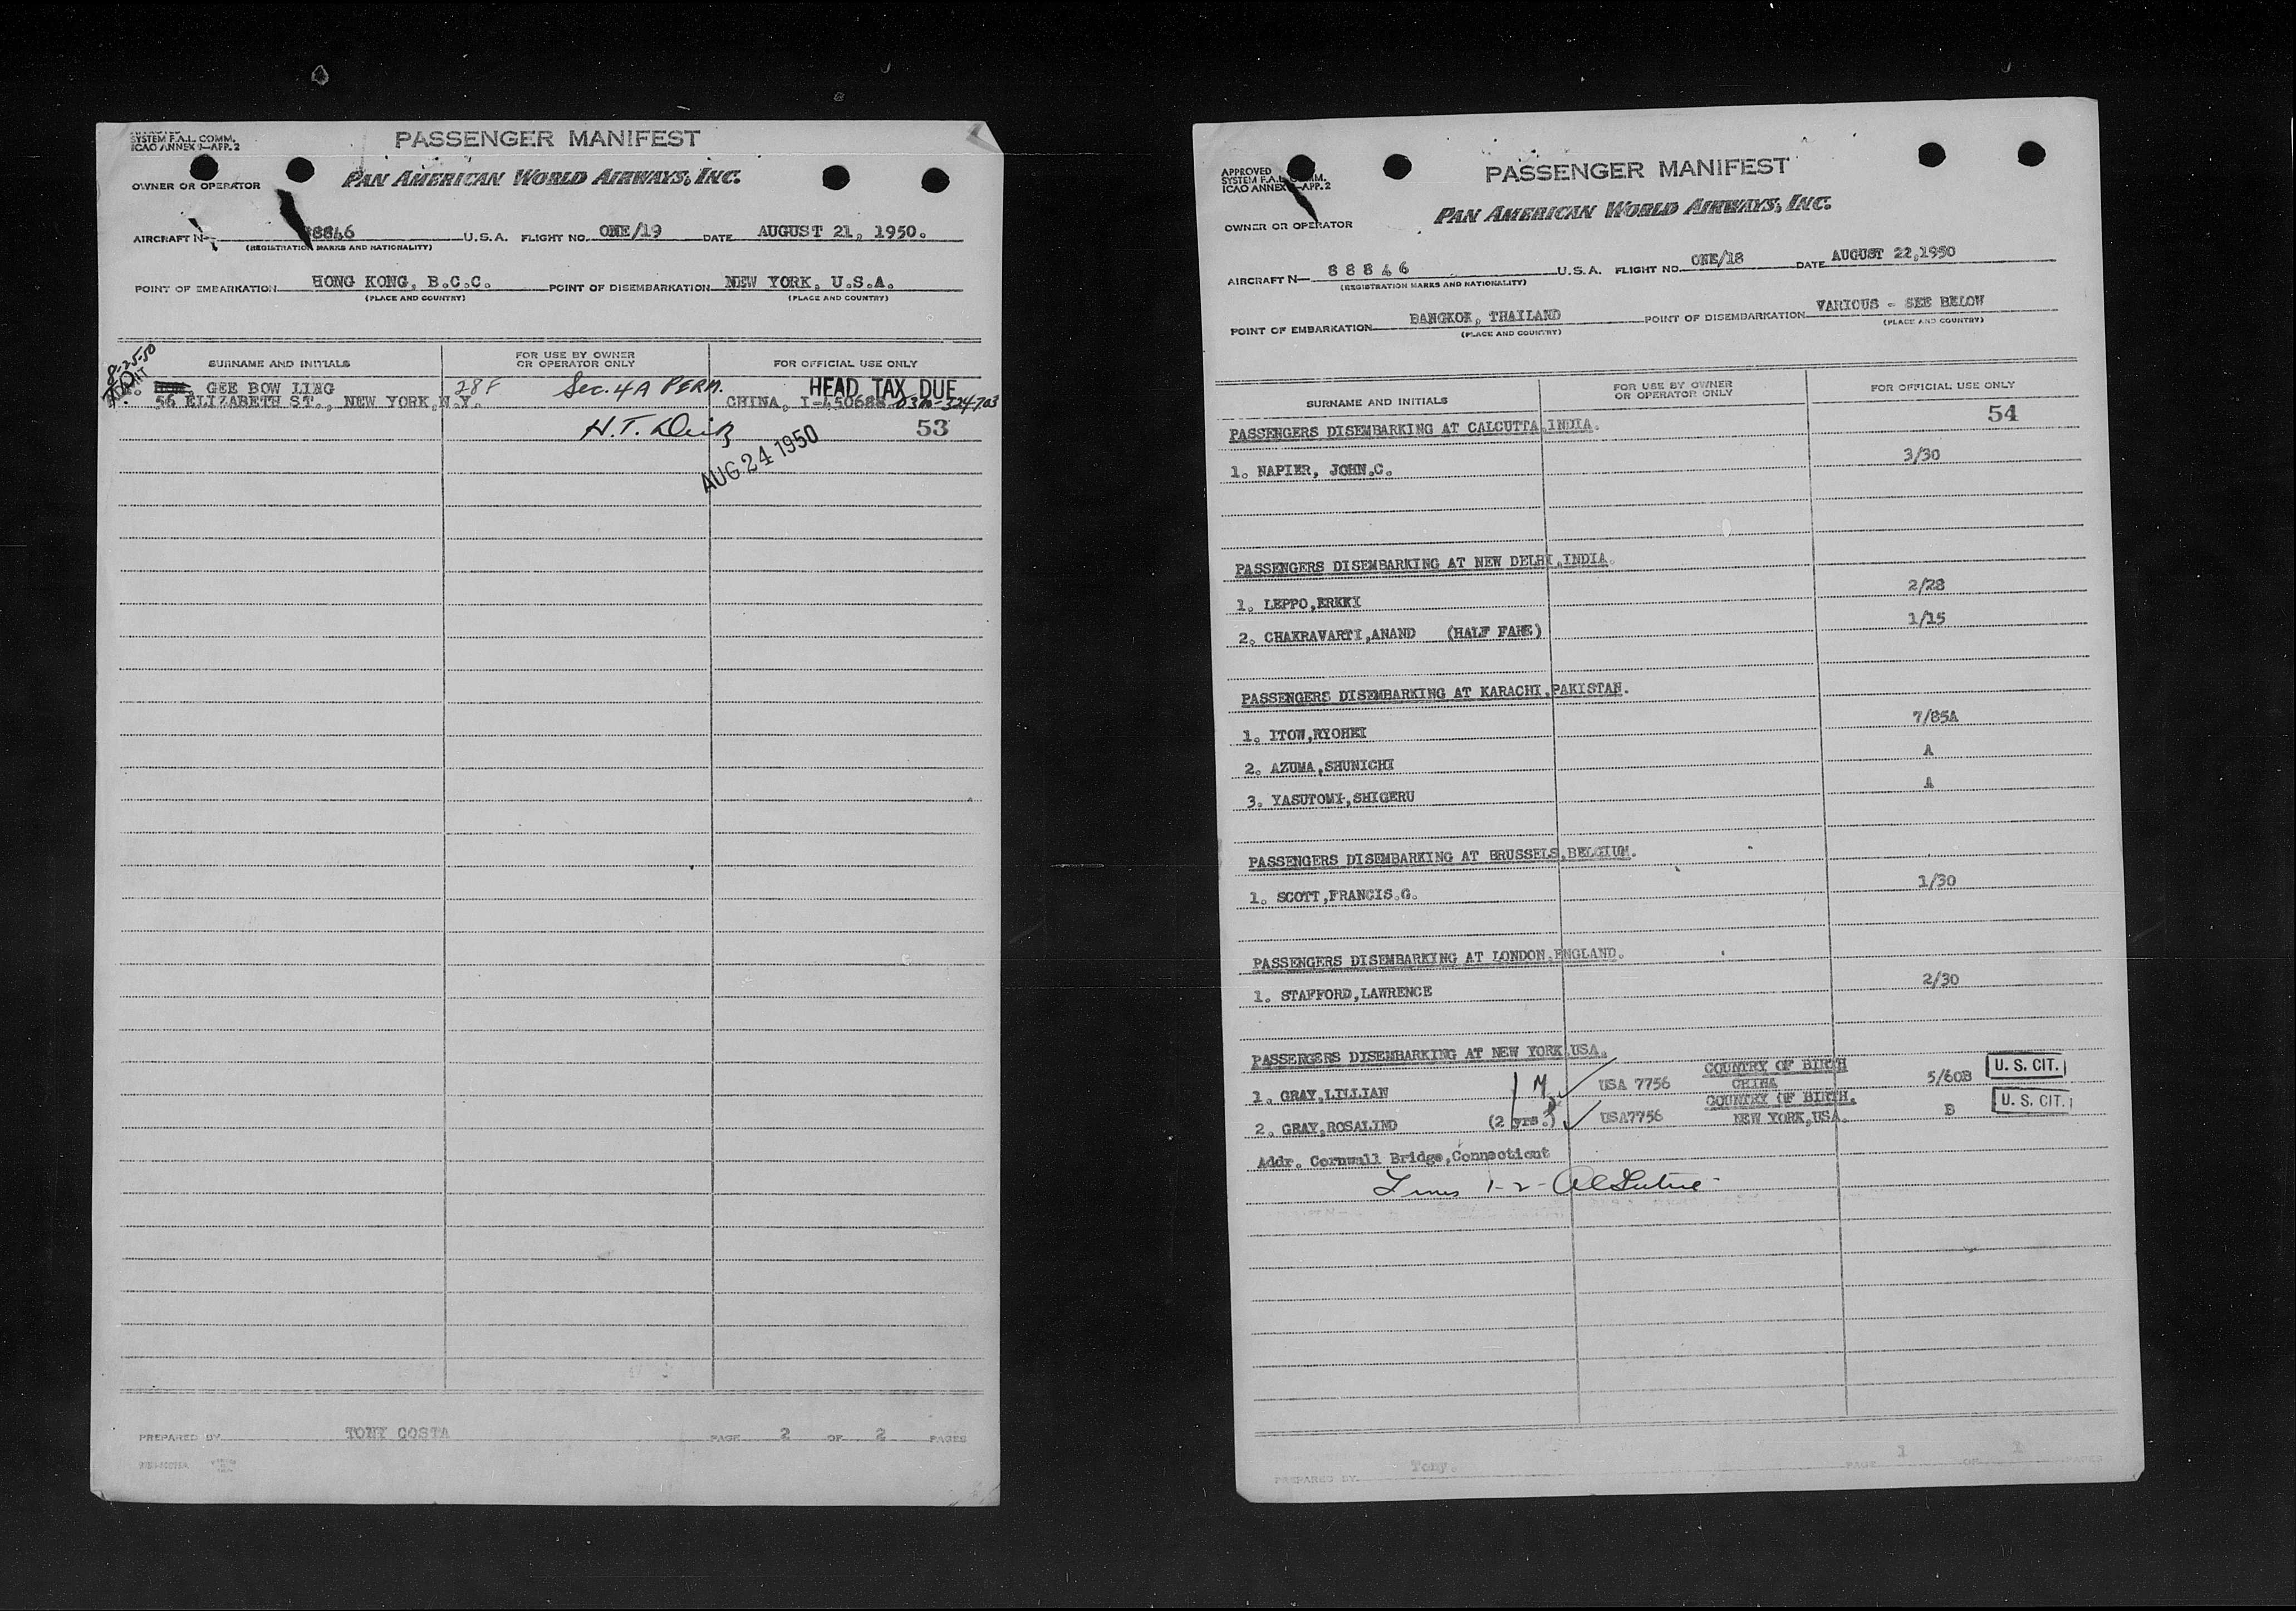 SYSTEM F.A.L. COMM.
ICAO ANNEX 9—APP. 2
PASSENGER MANIFEST
OWNER OR OPERATOR PAN AMERICAN WORLD AIRWAYS, INC.
AIRCRAFT N— 88846 U.S.A. FLIGHT NO. ONE/19 DATE AUGUST 21, 1950.
(REGISTRATION MARKS AND NATIONALITY)
POINT OF EMBARKATION HONG KONG, B.C.C. POINT OF DISEMBARKATION NEW YORK, U.S.A.
(PLACE AND COUNTRY) (PLACE AND COUNTRY)
SURNAME AND INITIALS FOR USE BY OWNER OR OPERATOR ONLY FOR OFFICIAL USE ONLY
8-25-50
ADMIT
GEE BOW LING 28F Sec. 4A PERM. HEAD TAX DUE
56 ELIZABETH ST., NEW YORK, N.Y. CHINA, I-450688 0300-324703
53
AUG 24 1950
PREPARED BY TONY COSTA PAGE 2 OF 2 PAGES
APPROVED
SYSTEM F.A.L. COMM.
ICAO ANNEX 9—APP. 2
PASSENGER MANIFEST
PAN AMERICAN WORLD AIRWAYS, INC.
OWNER OR OPERATOR
AIRCRAFT N— 88846 U.S.A. FLIGHT NO. ONE/18 DATE AUGUST 22,1950
(REGISTRATION MARKS AND NATIONALITY)
POINT OF EMBARKATION BANGKOK, THAILAND POINT OF DISEMBARKATION VARIOUS - SEE BELOW
(PLACE AND COUNTRY) (PLACE AND COUNTRY)
SURNAME AND INITIALS FOR USE BY OWNER OR OPERATOR ONLY FOR OFFICIAL USE ONLY
54
PASSENGERS DISEMBARKING AT CALCUTTA,INDIA.
1. NAPIER, JOHN.C. 3/30
PASSENGERS DISEMBARKING AT NEW DELHI,INDIA.
1. LEPPO,ERKKI 2/28
2. CHAKRAVARTI,ANAND (HALF FARE) 1/15
PASSENGERS DISEMBARKING AT KARACHI,PAKISTAN.
1. ITOW,RYOHEI 7/85A
2. AZUMA,SHUNICHI A
3. YASUTOMI,SHIGERU A
PASSENGERS DISEMBARKING AT BRUSSELS,BELGIUM.
1. SCOTT,FRANCIS.G. 1/30
PASSENGERS DISEMBARKING AT LONDON,ENGLAND.
1. STAFFORD,LAWRENCE 2/30
PASSENGERS DISEMBARKING AT NEW YORK,USA.
COUNTRY OF BIRTH
1. GRAY,LILLIAN M USA 7756 CHINA 5/60B U. S. CIT.
COUNTRY OF BIRTH.
2. GRAY,ROSALIND (2 yrs.) USA7756 NEW YORK,USA. B U. S. CIT.
Addr. Cornwall Bridge,Connecticut
1-2-
PREPARED BY Tony. PAGE 1 OF 1 PAGES